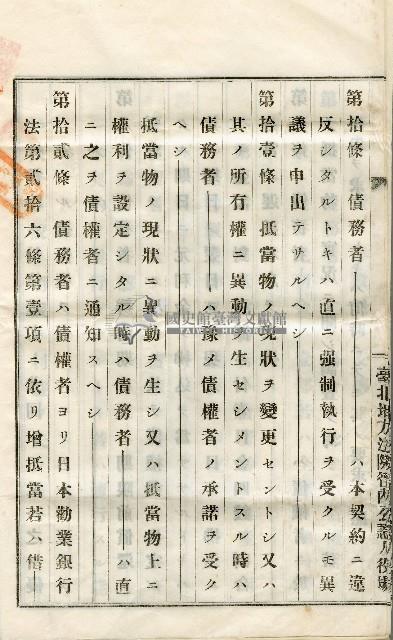 第拾條 債務者――ハ本契約ニ違
反シタルトキハ直ニ强制執行ヲ受クルモ異
議ヲ申出テサルヘシ
第拾壹條 抵當物ノ現狀ヲ變更セントシ又ハ
其ノ所有權ニ異動ヲ生セシメントスル時ハ
債務者――ハ豫メ債權者ノ承諾ヲ受ク
ヘシ
抵當物ノ現狀ニ異動ヲ生シ又ハ抵當物上ニ
權利ヲ設定シタル時ハ債務者――ハ直
ニ之ヲ債權者ニ通知スヘシ
第拾貳條 債務者ハ債權者ヨリ日本勸業銀行
法第貳拾六條第壹項ニ依リ增抵當若ハ借
臺北地方法院管內公證人役場
國史館臺灣文獻館
TAIWAN HISTORICA